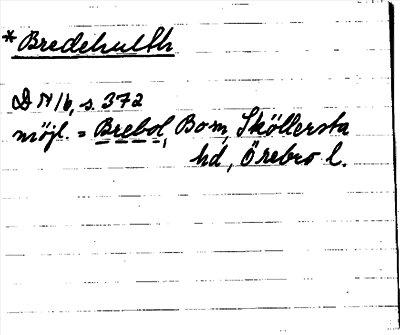 * Bredehulth
DN 16, s. 372
möjl. = Brebol, Bom, Sköllersta
hd, Örebro l.